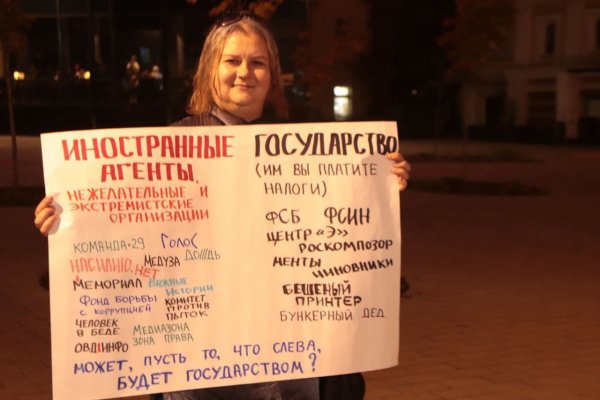 ИНОСТРАННЫЕ
АГЕНТЫ,
НЕЖЕЛАТЕЛЬНЫЕ И
ЭКСТРЕМИСТСКИЕ
ОРГАНИЗАЦИИ
КОМАНДА•29 ГОЛОС
НАСИЛИЮ.НЕТ МЕДУЗА ДОЖДЬ
МЕМОРИАЛ ВАЖНЫЕ
ИСТОРИИ
ФОНД БОРЬБЫ
С КОРРУПЦИЕЙ
КОМИТЕТ
ПРОТИВ
ПЫТОК
ЧЕЛОВЕК
В БЕДЕ
МЕДИАЗОНА
ЗОНА ПРАВА
ОВДИНФО
ГОСУДАРСТВО
(ИМ ВЫ ПЛАТИТЕ
НАЛОГИ)
ФСБ ФСИН
ЦЕНТР «Э»
РОСКОМПОЗОР
МЕНТЫ ЧИНОВНИКИ
БЕШЕНЫЙ
ПРИНТЕР
БУНКЕРНЫЙ ДЕД
МОЖЕТ, ПУСТЬ ТО, ЧТО СЛЕВА,
БУДЕТ ГОСУДАРСТВОМ?